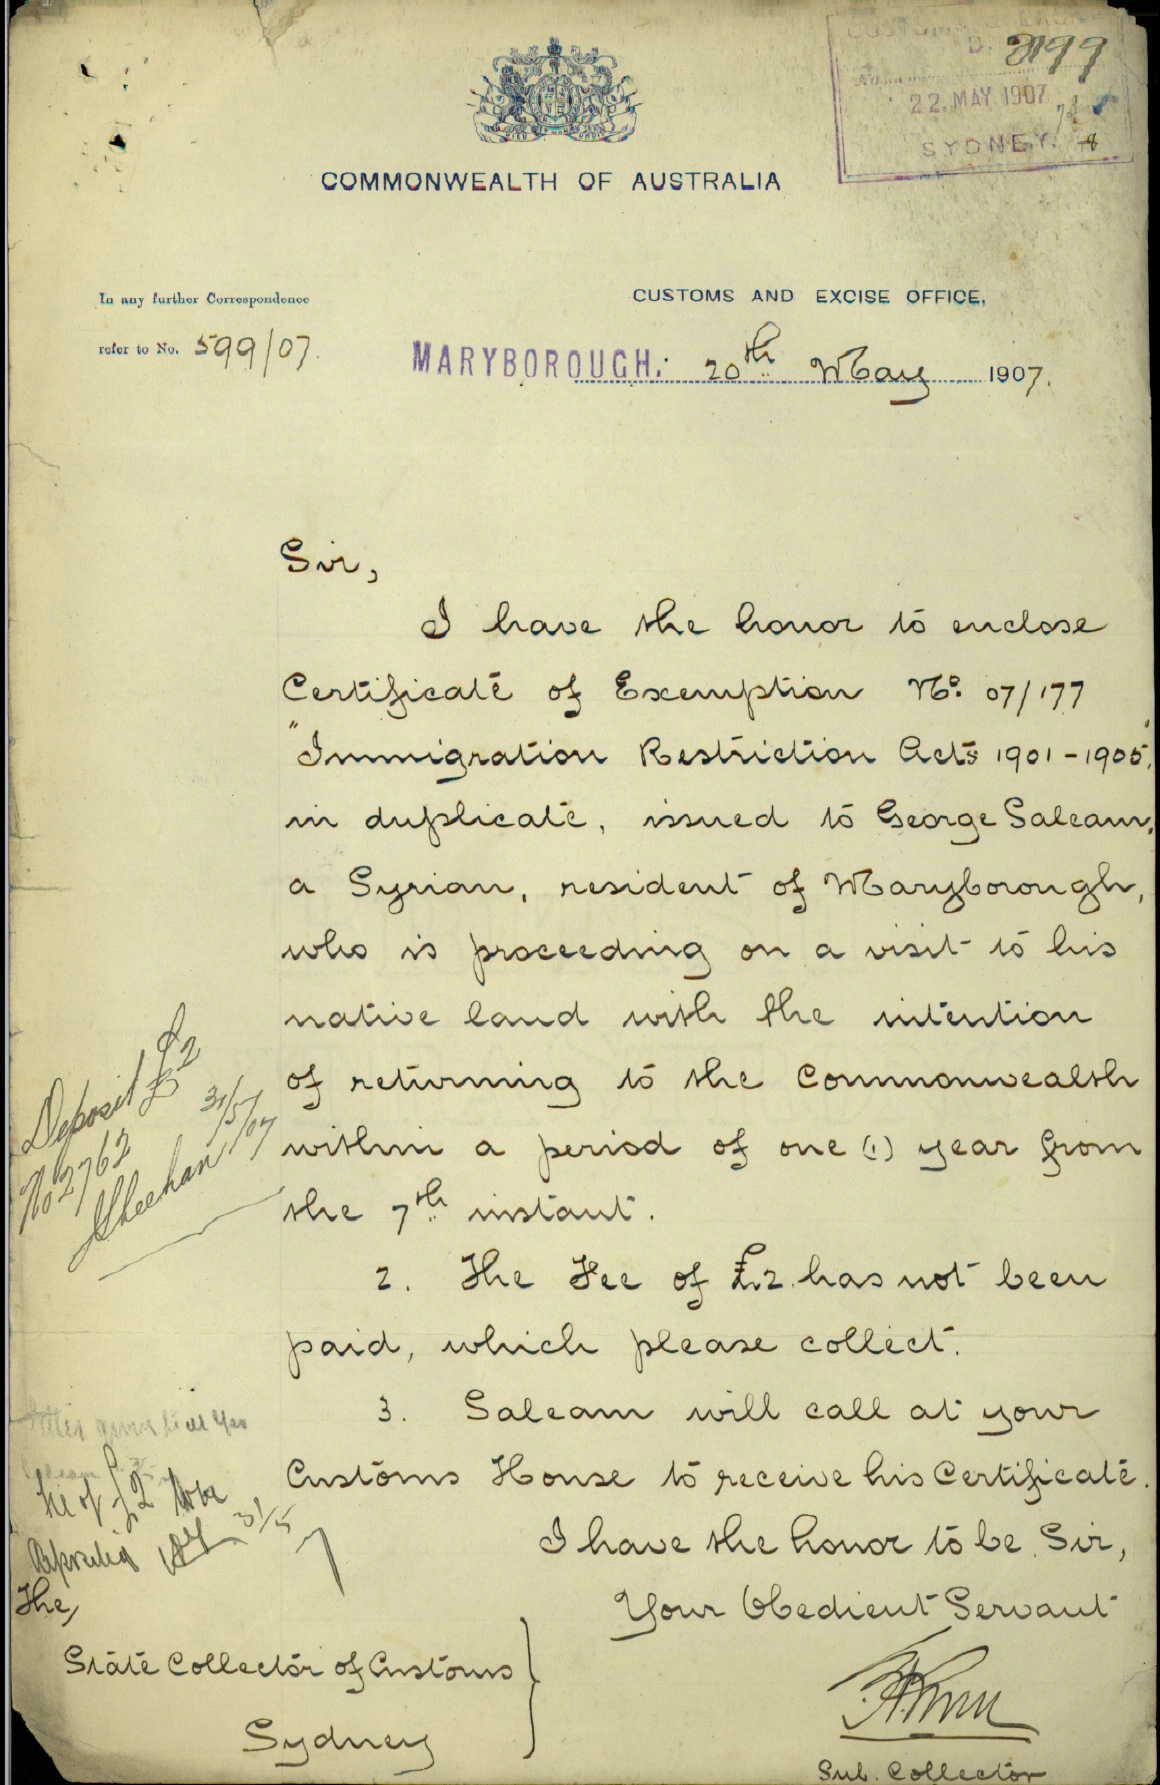 D. 2199
22. MAY. 1907
SYDNEY.
COMMONWEALTH OF AUSTRALIA
In any further Correspondence
refer to No. 599/07.
CUSTOMS AND EXCISE OFFICE,
MARYBOROUGH: 20th May 1907.
Sir,
I have the honor to enclose
Certificate of Exemption No. 07/177
"Immigration Restriction Acts 1901-1905",
in duplicate, issued to George Saleam,
a Syrian, resident of Maryborough,
who is proceeding on a visit to his
native land with the intention
of returning to the Commonwealth
within a period of one (1) year from
the 7th instant.
2. The Fee of £2. has not been
paid, which please collect.
3. Saleam will call at your
Customs House to receive his Certificate.
I have the honor to be, Sir,
Your Obedient Servant
Sub. Collector
Deposit £2
No 2762 31/5/07
Sheehan
of £2 to be
31/5
7
The,
State Collector of Customs
Sydney